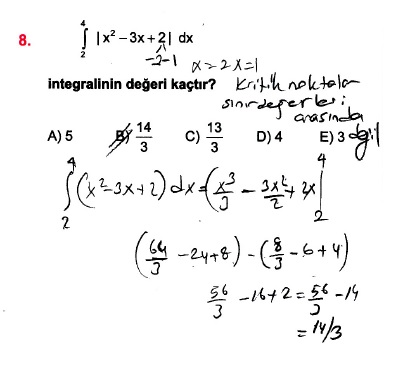 8. ∫₂⁴ |x² – 3x + 2| dx
–2 –1 x=2 x=1
integralinin değeri kaçtır? Kritik noktalar
sınır değerleri
arasında
A) 5 B) 14/3 C) 13/3 D) 4 E) 3 değil
∫₂⁴ (x²–3x+2) dx = (x³/3 – 3x²/2 + 2x |₂⁴
(64/3 – 24+8) – (8/3 – 6+4)
56/3 – 16+2 = 56/3 – 14
= 14/3